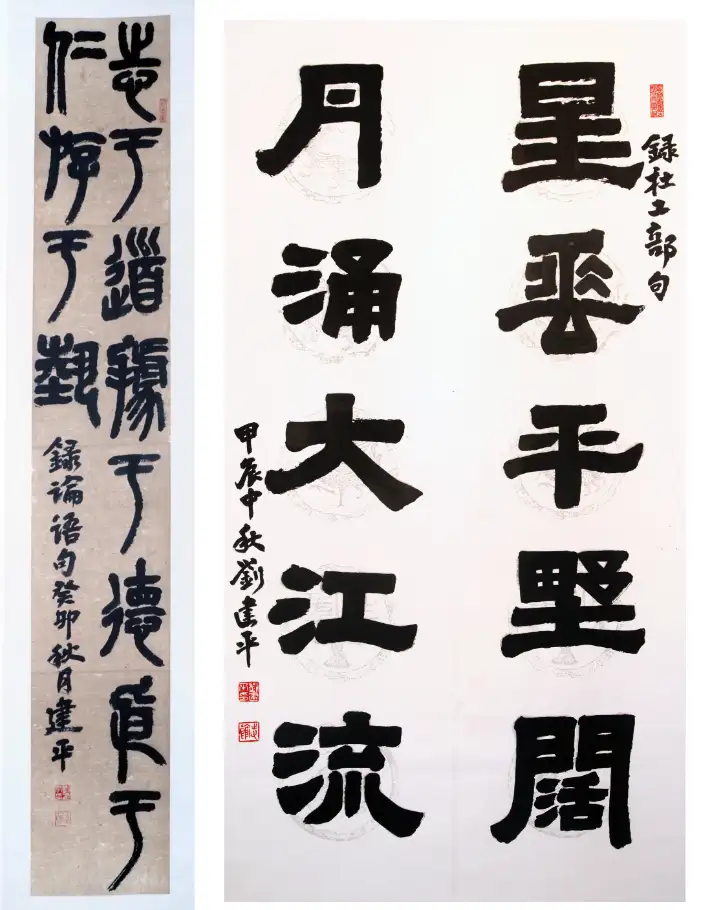 志于道據于德依于
仁游于埶
録論語句癸卯秋月建平
録杜工部句
星垂平墅闊
月涌大江流
甲辰中秋劉建平